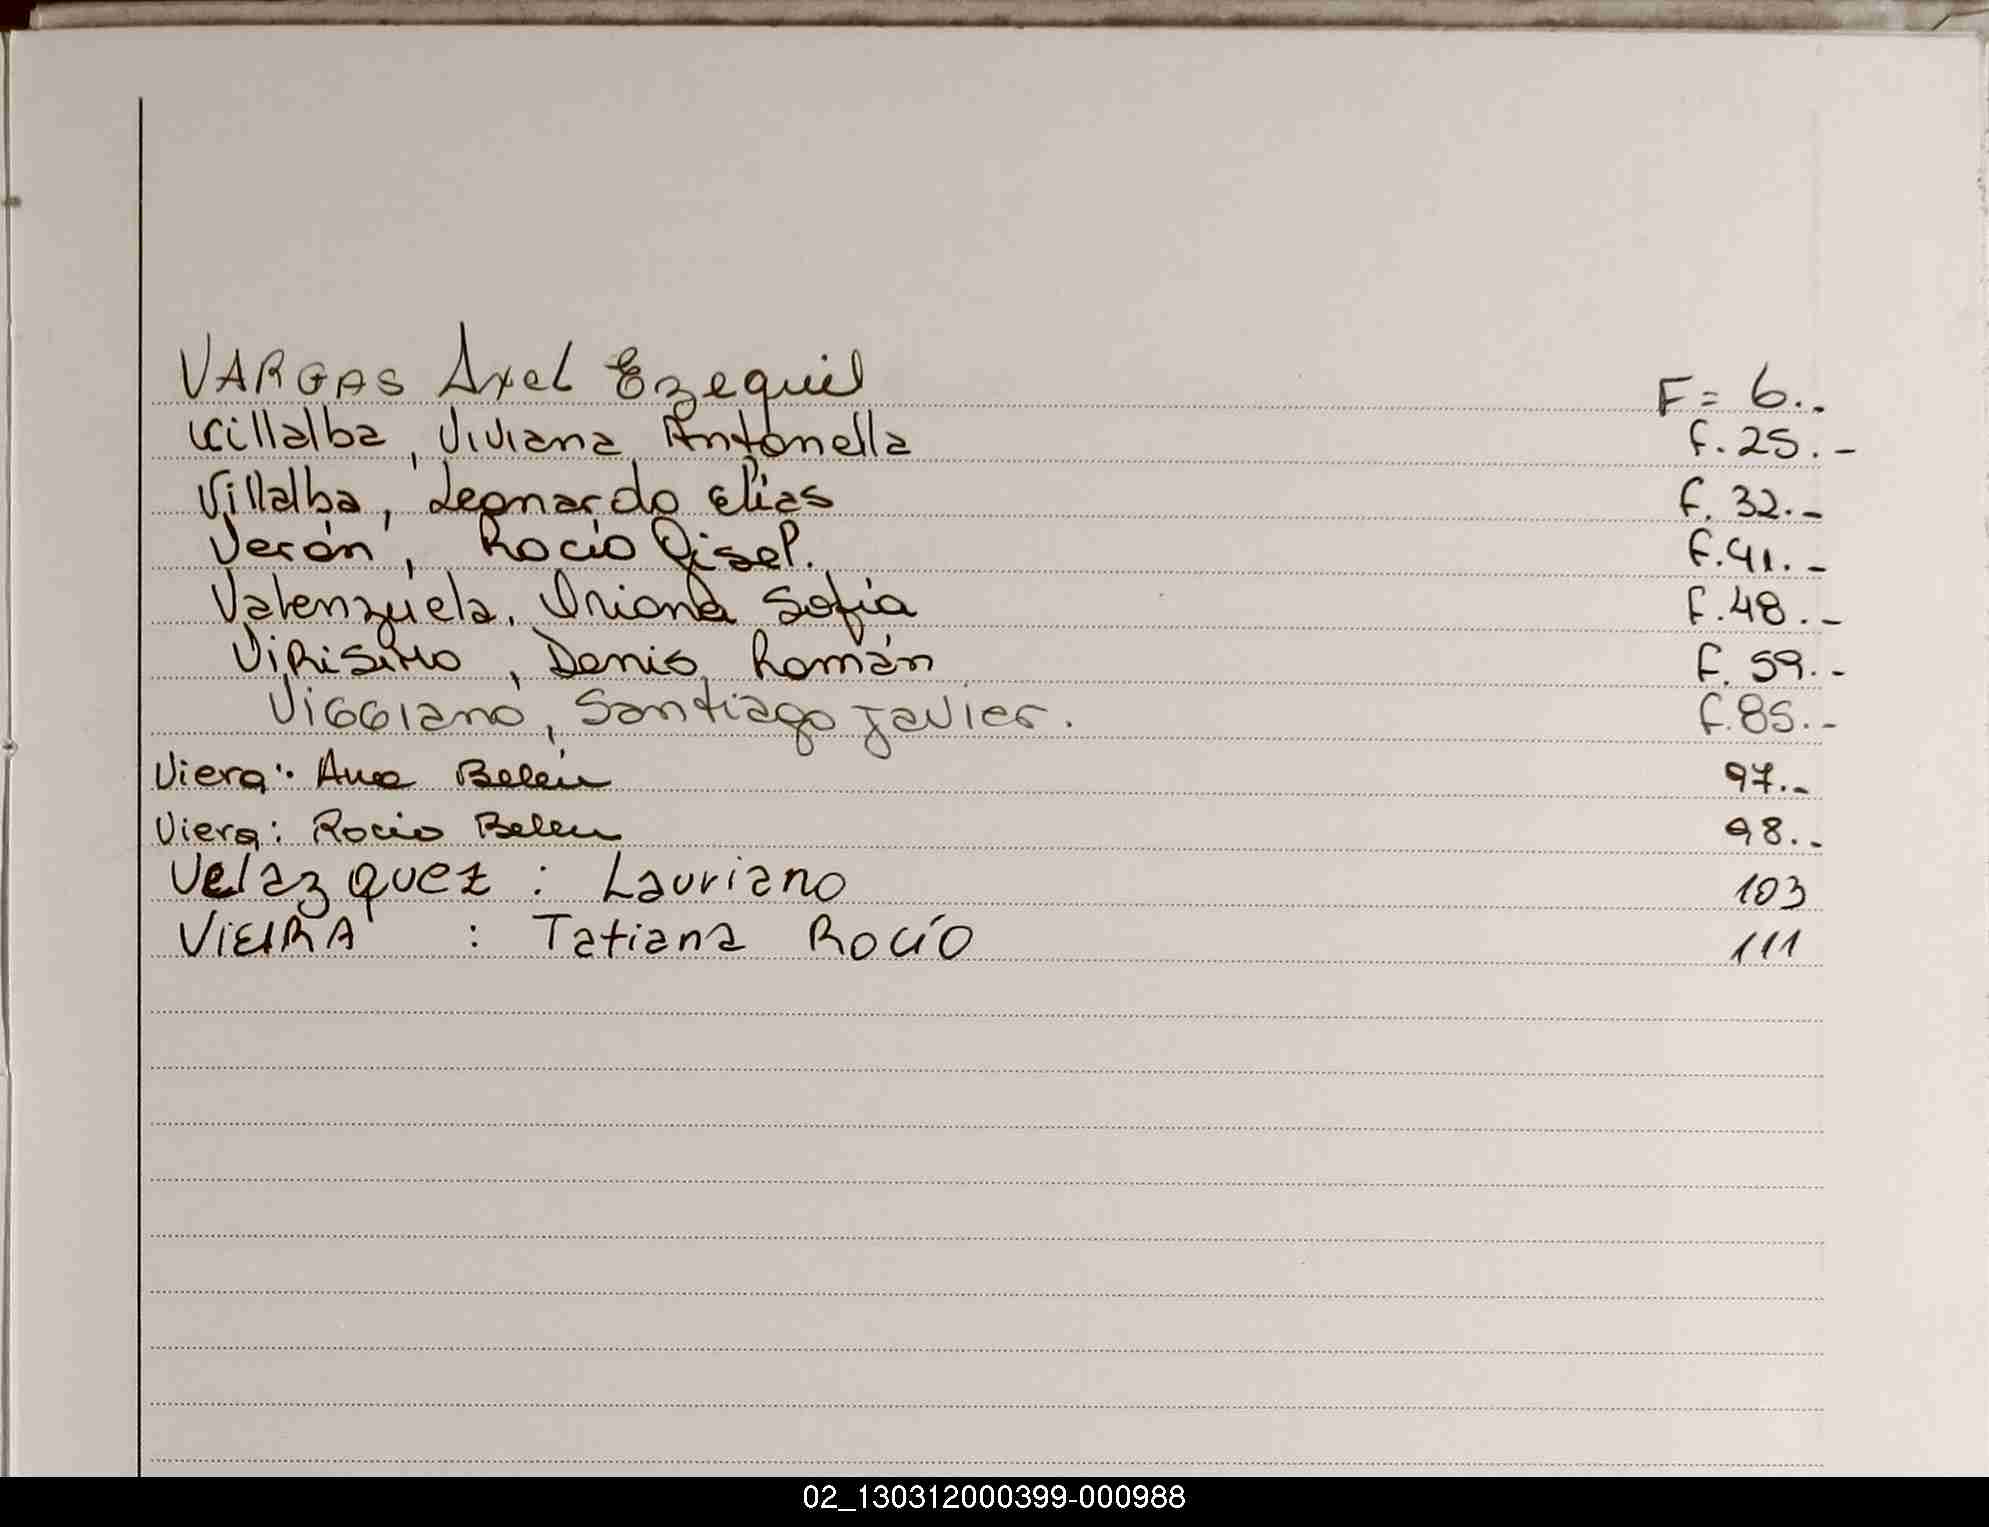 VARGAS Axel Ezequiel F = 6..-
Villalba, Viviana Antonella f. 25.-
Villalba, Leonardo Elías f. 32.-
Verón, Rocio Gisel. f. 41.-
Valenzuela. Oriana Sofía f. 48.-
Virisimo, Denis Román f. 59.-
Viggiano, Santiago Javier. f. 85.-
Viera: Ana Belén 97.-
Viera: Rocio Belen 98.-
Velazquez : Lauriano 103
VIEIRA : Tatiana Rocío 111
02_130312000399-000988